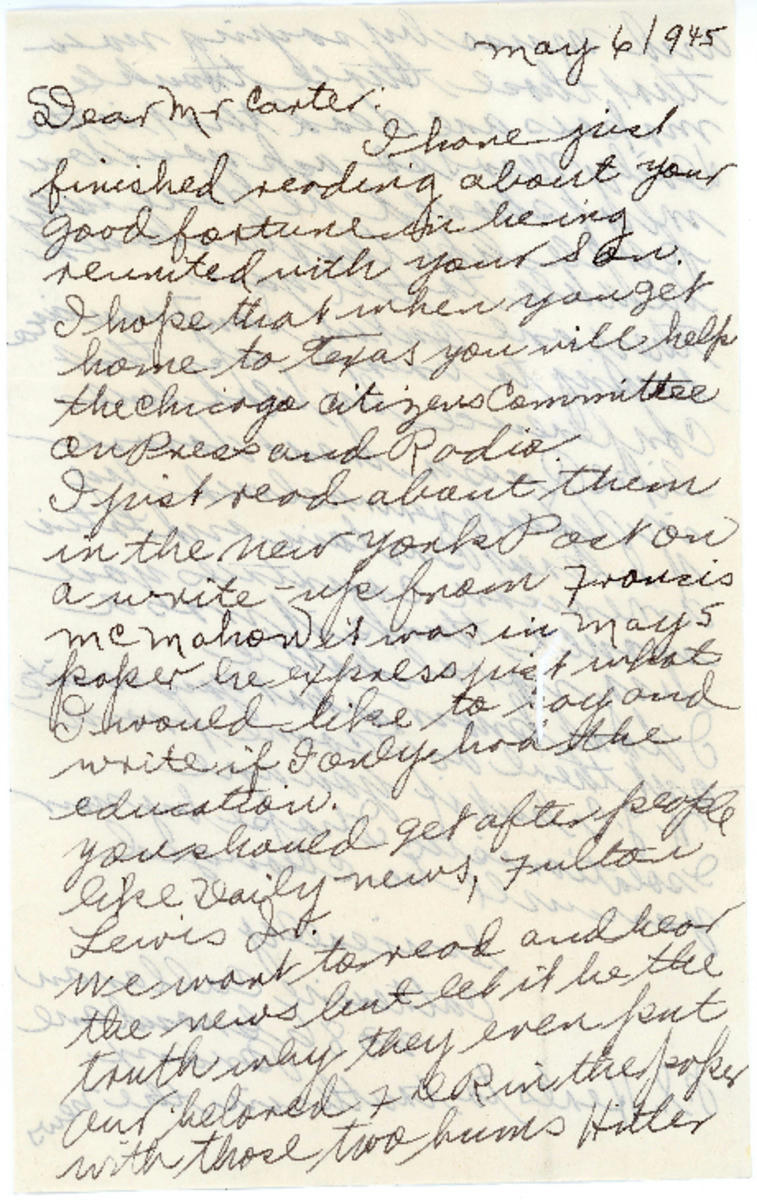 May 6/1945
Dear Mr Carter:
I have just
finished reading about your
good fortune in being
reunited with your son.
I hope that when you get
home to Texas you will help
the Chicago Citizens Committee
on Press and Radio.
I just read about them
in the New York Post on
a write-up from Francis
McMahon it was in May 5
paper he express just what
I would like to say and
write if I only had the
education.
you should get after people
like Daily News, Fulton
Lewis Jr.
We want to read and hear
the news but let it be the
truth why they even put
our beloved FDR in the paper
with those two bums Hitler